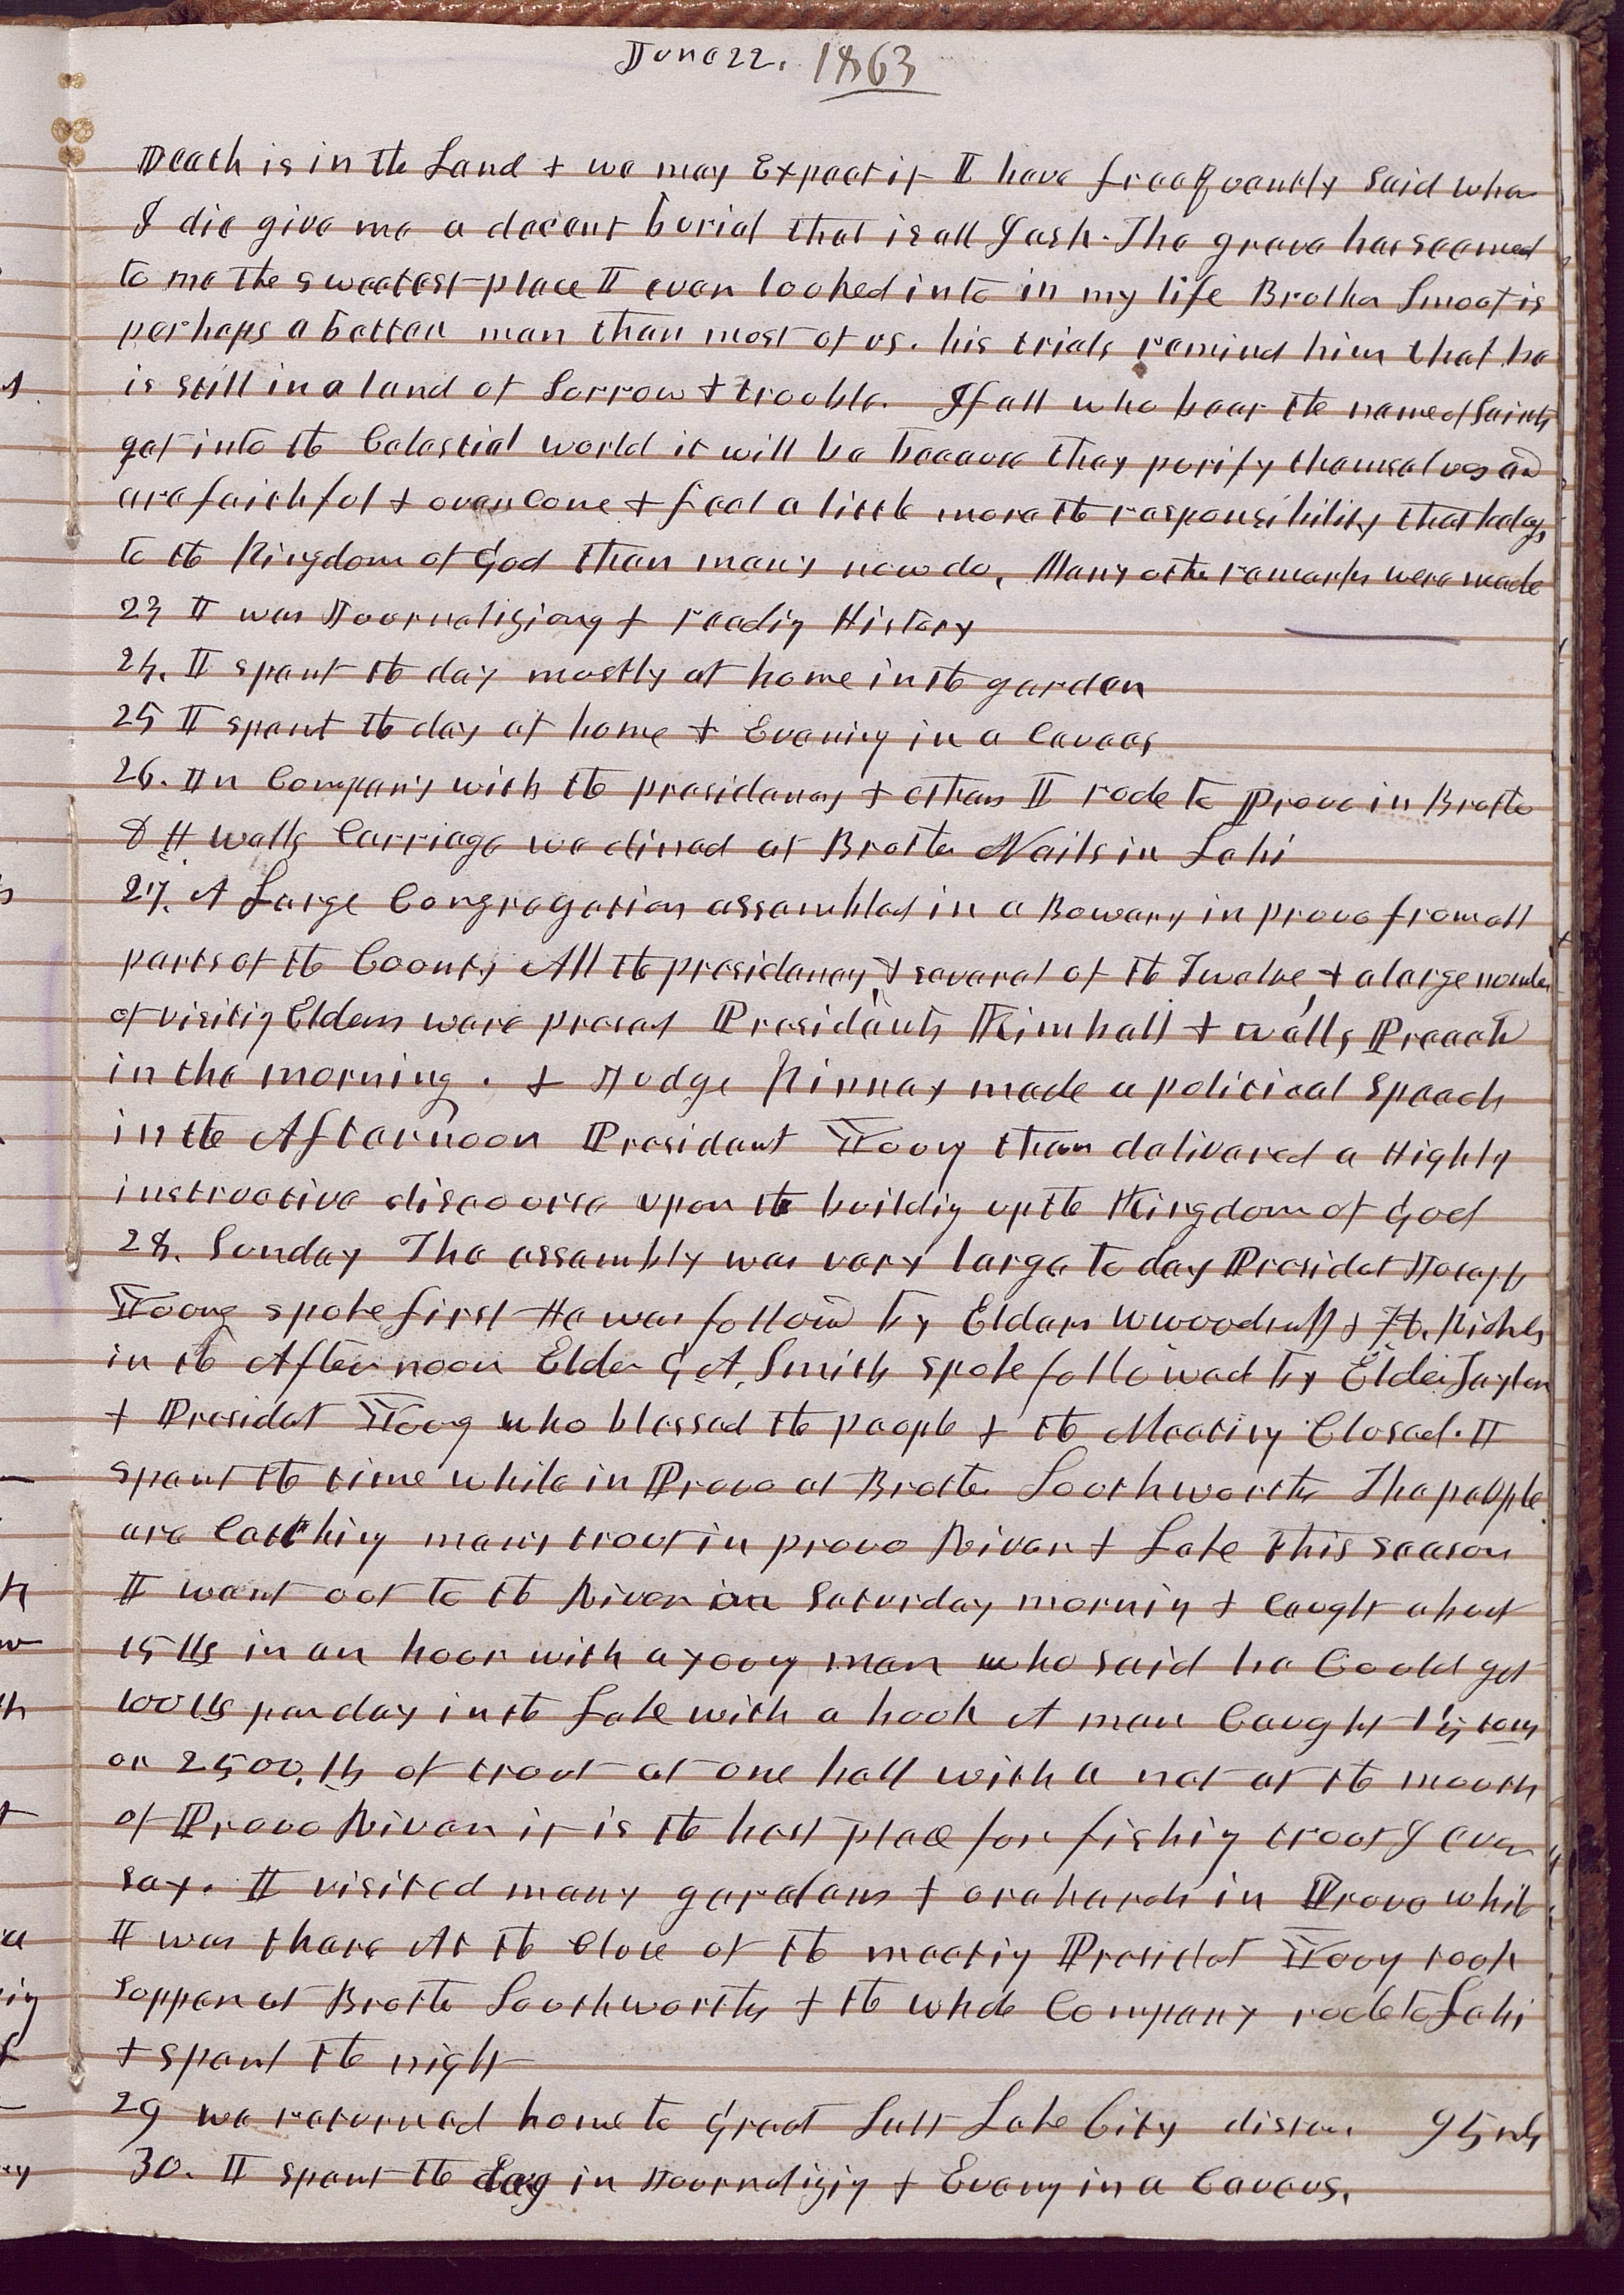 June 22. 1863
Death is in the Land & we may Expect it I have freequently said when
I die give me a decent burial that is all I ask. The grave has seemed
to me the sweetest place I ever looked into in my life Brother Smoot is
perhaps a better man than most of us. his trials remind him that he
is still in a land of Sorrow & trouble. If all who bear the name of Saints
get into the Celestial world it will be because they purify themselves and
are faithful & overcome & feel a little more the responsibility that belongs
to the Kingdom of God than many now do, Many other remarks were made
23 I was Journalising & readig History
24. I spent the day mostly at home in the garden
25 I spent the day at home & Evening in a Caucus
26. In Company with the presidency & others I rode to Provo in Brother
D H Wells Carriage we dined at Brother Nails in Lehi
27. A Large Congregation assembled in a Bowery in provo from all
parts of the County All the presidency & several of the Twelve & a large number
of visitig Elders were present Presidents Kimball & Wells Preach
in the morning. & Judge Kinney made a political speech
in the Afternoon President Young then delivered a Highly
instructive discourse upon the buildig up the Kingdom of God
28. Sunday The assembly was very large to day Presidet Joseph
Young spoke first He was follow by Elders W Woodruff & F D. Richds
in the Afternoon Elder G A, Smith spoke followed by Elder Taylor
& Presidet Young who blessed the people & the Meeting Closed. I
spent the time while in Provo at Brother Southworths The people
are Catching many trout in provo River & Lake this season
I went out to the River on Saturday mornig & caught about
15 lbs in an hour with a young man who said he Could get
100 lbs per day in the Lake with a hook A man Caught 1¼ tons
or 2500, lb of trout at one hall with a net at the mouth
of Provo River it is the best place for fishig trout I ever
say. I visited many gardens & orchards in Provo while
I was there At the Close of the meetig Presidet Young took
supper at Brother Southworths & the whole Company rode to Lehi
& spent the night
29 we returned home to Great Salt Lake City distan. 95 mls
30. I spent the day in Journalizig & Evenig in a Caucus.